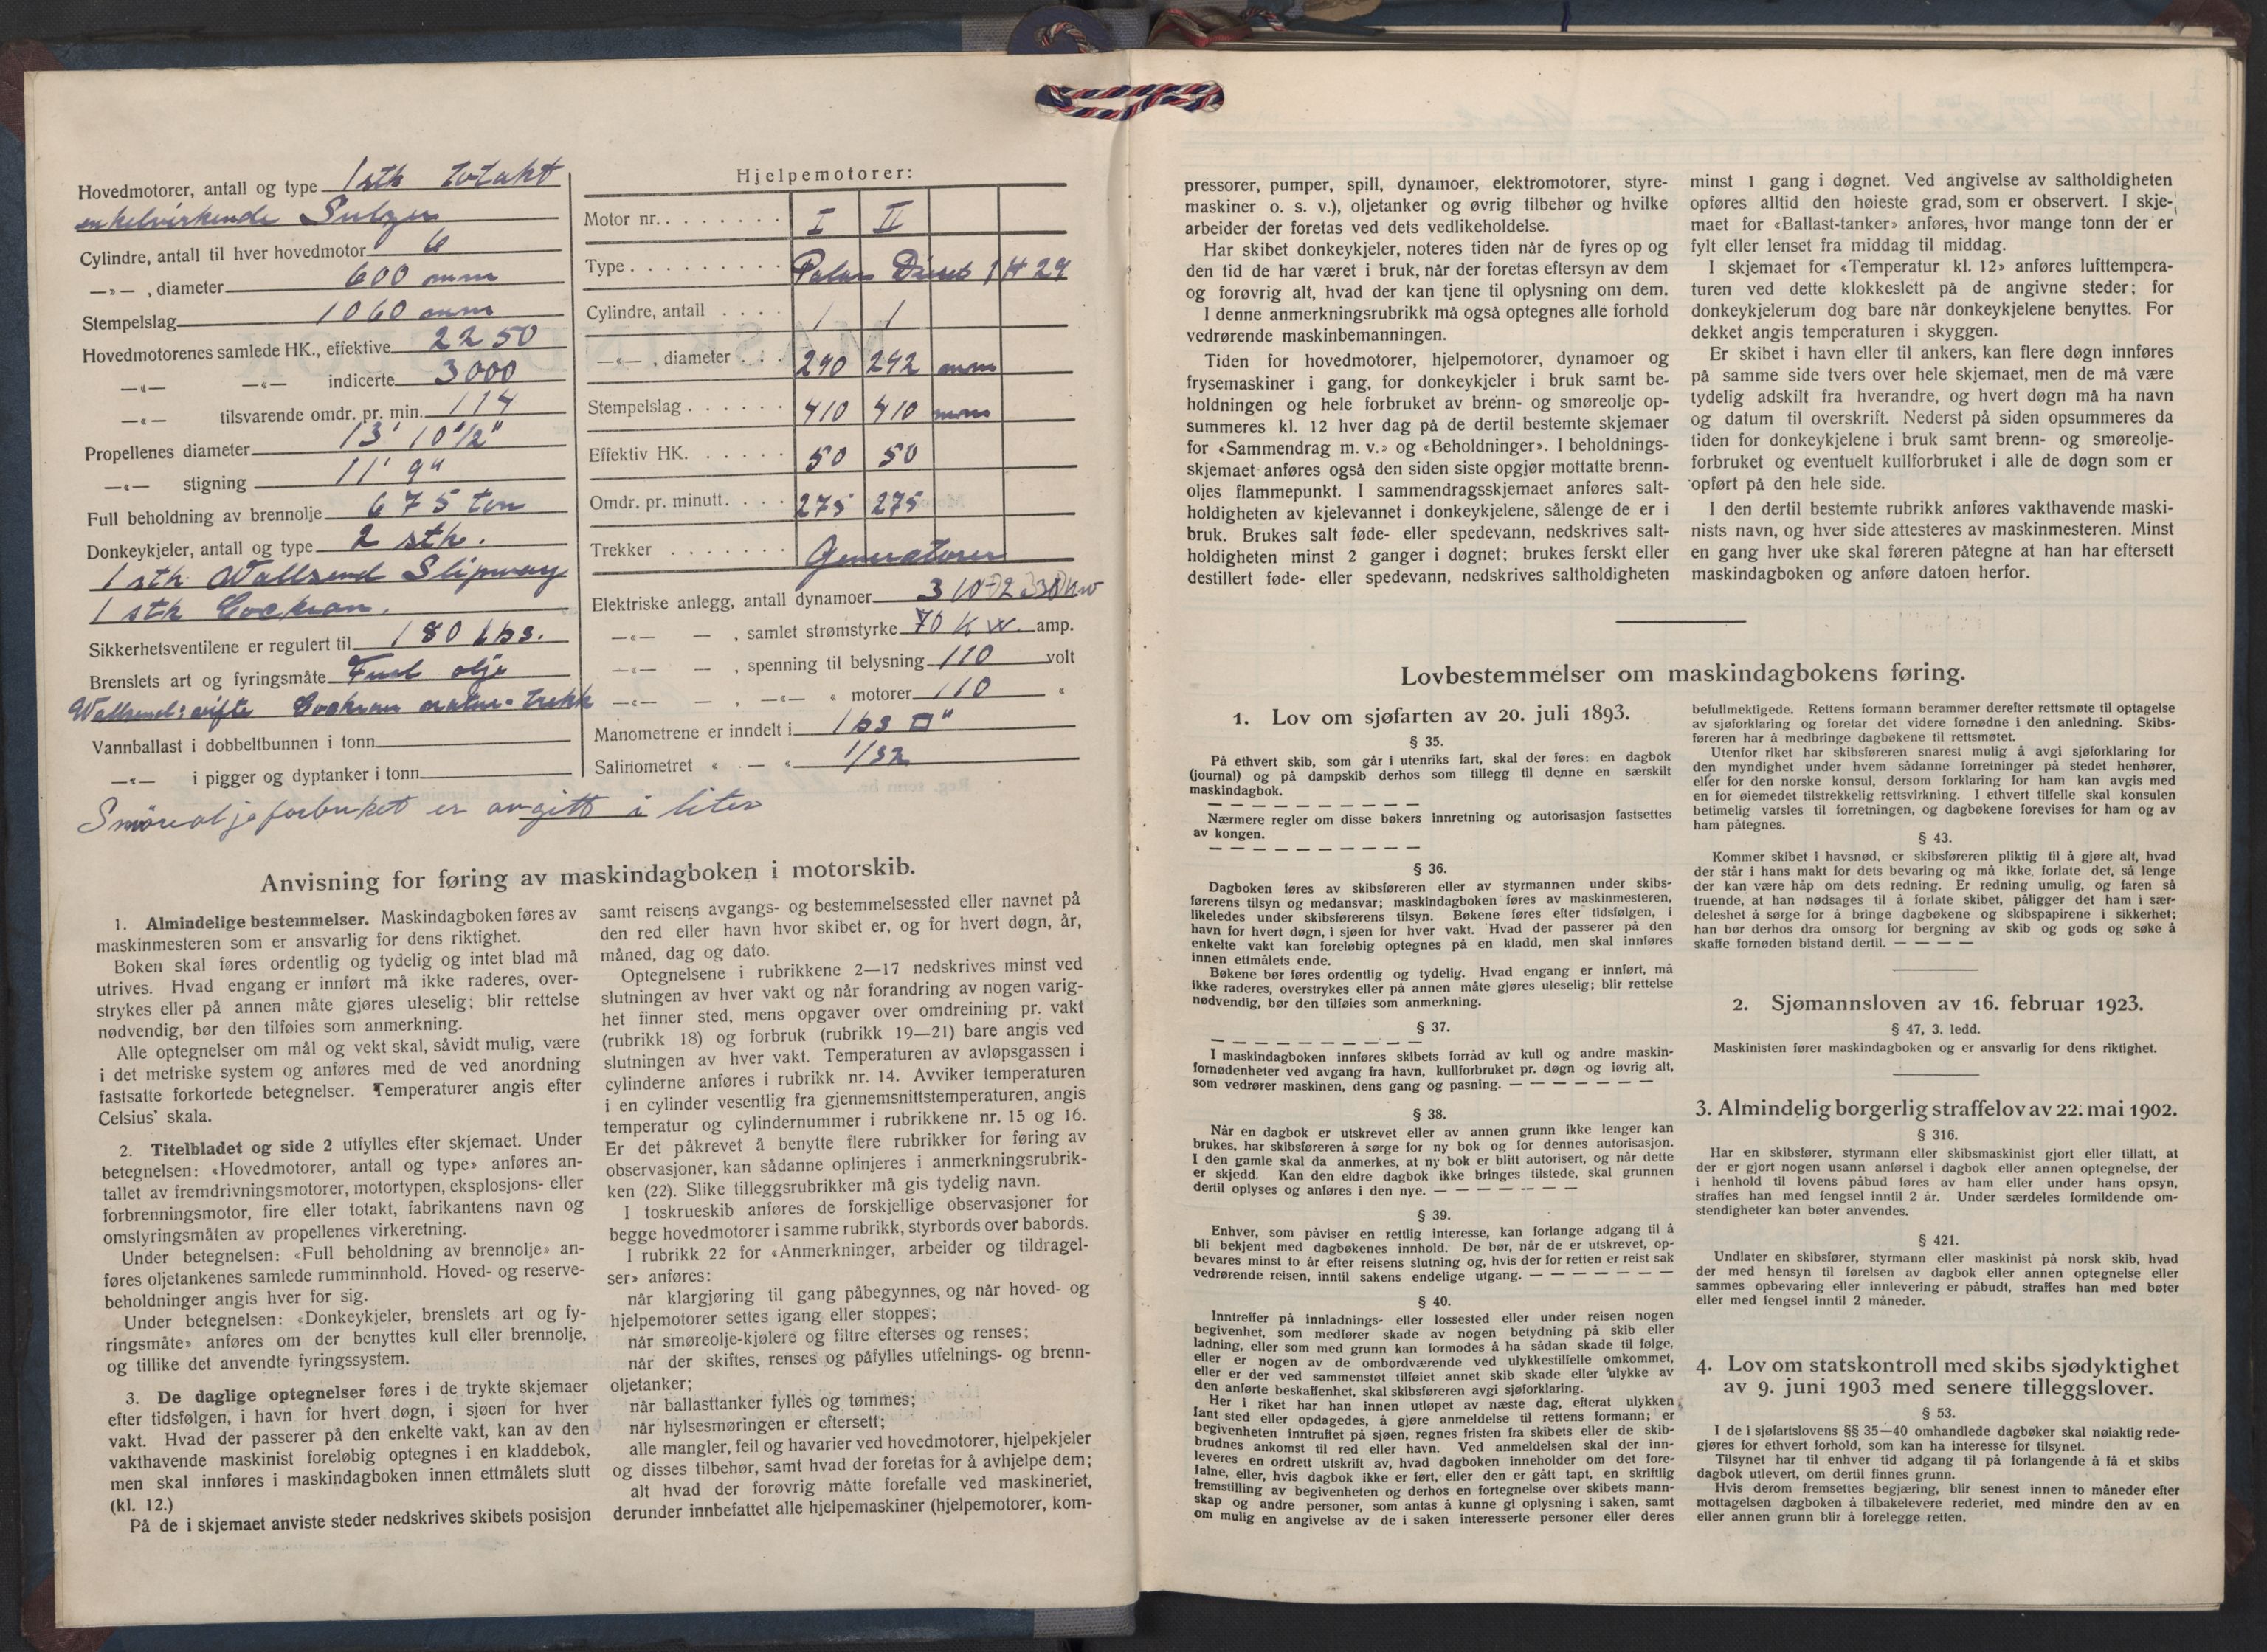 Hovedmotorer, antall og type 1 stk totakt
enkelvirkende Sulzer
Cylindre, antall til hver hovedmotor 6
—»— , diameter 600 mm
Stempelslag 1060 mm
Hovedmotorenes samlede HK., effektive 2250
—«— —«— indicerte 3000
—«— tilsvarende omdr. pr. min. 114
Propellenes diameter 13' 10 1/2"
—«— stigning 11' 9"
Full beholdning av brennolje 675 ton
Donkeykjeler, antall og type 2 stk.
1 stk Wallsend Slipway
1 stk Cochran.
Sikkerhetsventilene er regulert til 180 lbs.
Brenslets art og fyringsmåte Fuel olje
Wallsend: vifte Cochran natur-trekk
Vannballast i dobbeltbunnen i tonn
—«— i pigger og dyptanker i tonn
Smøreoljeforbruket er avgitt i liter
Hjelpemotorer:
Motor nr. . . . . . . . I II
Type . . . . . . . . . Polar Diesel 1 H 29
Cylindre, antall . . . . 1 1
—«— , diameter . . . 290 292 mm
Stempelslag . . . . . . 410 410 mm
Effektiv HK. . . . . . 50 50
Omdr. pr. minutt. . . . 275 275
Trekker . . . . . . . Generatorer
Elektriske anlegg, antall dynamoer 3
—«— — , samlet strømstyrke 70 KW. amp.
—«— — , spenning til belysning 110 volt
—«— — , —«— « motorer 110 «
Manometrene er inndelt i lbs □"
Salinometret « — « 1/32
Anvisning for føring av maskindagboken i motorskib.
1. Almindelige bestemmelser. Maskindagboken føres av
maskinmesteren som er ansvarlig for dens riktighet.
Boken skal føres ordentlig og tydelig og intet blad må
utrives. Hvad engang er innført må ikke raderes, over-
strykes eller på annen måte gjøres uleselig; blir rettelse
nødvendig, bør den tilføies som anmerkning.
Alle optegnelser om mål og vekt skal, såvidt mulig, være
i det metriske system og anføres med de ved anordning
fastsatte forkortede betegnelser. Temperaturer angis efter
Celsius' skala.
2. Titelbladet og side 2 utfylles efter skjemaet. Under
betegnelsen: «Hovedmotorer, antall og type» anføres an-
tallet av fremdrivningsmotorer, motortypen, eksplosjons- eller
forbrenningsmotor, fire eller totakt, fabrikantens navn og
omstyringsmåten av propellenes virkeretning.
Under betegnelsen: «Full beholdning av brennolje» an-
føres oljetankenes samlede rumminnhold. Hoved- og reserve-
beholdninger angis hver for sig.
Under betegnelsen: «Donkeykjeler, brenslets art og fy-
ringsmåte» anføres om der benyttes kull eller brennolje,
og tillike det anvendte fyringssystem.
3. De daglige optegnelser føres i de trykte skjemaer
efter tidsfølgen, i havn for hvert døgn, i sjøen for hver
vakt. Hvad der passerer på den enkelte vakt, kan av den
vakthavende maskinist foreløbig optegnes i en kladdebok,
men skal innføres i maskindagboken innen ettmålets slutt
(kl. 12.)
På de i skjemaet anviste steder nedskrives skibets posisjon
samt reisens avgangs- og bestemmelsessted eller navnet på
den red eller havn hvor skibet er, og for hvert døgn, år,
måned, dag og dato.
Optegnelsene i rubrikkene 2—17 nedskrives minst ved
slutningen av hver vakt og når forandring av nogen varig-
het finner sted, mens opgaver over omdreining pr. vakt
(rubrikk 18) og forbruk (rubrikk 19—21) bare angis ved
slutningen av hver vakt. Temperaturen av avløpsgassen i
cylinderne anføres i rubrikk nr. 14. Avviker temperaturen
i en cylinder vesentlig fra gjennemsnittstemperaturen, angis
temperatur og cylindernummer i rubrikkene nr. 15 og 16.
Er det påkrevet å benytte flere rubrikker for føring av
observasjoner, kan sådanne oplinjeres i anmerkningsrubrik-
ken (22). Slike tilleggsrubrikker må gis tydelig navn.
I toskrueskib anføres de forskjellige observasjoner for
begge hovedmotorer i samme rubrikk, styrbords over babords.
I rubrikk 22 for «Anmerkninger, arbeider og tildragel-
ser» anføres:
når klargjøring til gang påbegynnes, og når hoved- og
hjelpemotorer settes igang eller stoppes;
når smøreolje-kjølere og filtre efterses og renses;
når der skiftes, renses og påfylles utfelnings- og brenn-
oljetanker;
når ballasttanker fylles og tømmes;
når hylsesmøringen er eftersett;
alle mangler, feil og havarier ved hovedmotorer, hjelpekjeler
og disses tilbehør, samt hvad der foretas for å avhjelpe dem;
alt hvad der forøvrig måtte forefalle ved maskineriet,
derunder innbefattet alle hjelpemaskiner (hjelpemotorer, kom-
pressorer, pumper, spill, dynamoer, elektromotorer, styre-
maskiner o. s. v.), oljetanker og øvrig tilbehør og hvilke
arbeider der foretas ved dets vedlikeholdelse.
Har skibet donkeykjeler, noteres tiden når de fyres op og
den tid de har været i bruk, når der foretas eftersyn av dem
og forøvrig alt, hvad der kan tjene til oplysning om dem.
I denne anmerkningsrubrikk må også optegnes alle forhold
vedrørende maskinbemanningen.
Tiden for hovedmotorer, hjelpemotorer, dynamoer og
frysemaskiner i gang, for donkeykjeler i bruk samt be-
holdningen og hele forbruket av brenn- og smøreolje op-
summeres kl. 12 hver dag på de dertil bestemte skjemaer
for «Sammendrag m. v.» og «Beholdninger». I beholdnings-
skjemaet anføres også den siden siste opgjør mottatte brenn-
oljes flammepunkt. I sammendragsskjemaet anføres salt-
holdigheten av kjelevannet i donkeykjelene, sålenge de er i
bruk. Brukes salt føde- eller spedevann, nedskrives salt-
holdigheten minst 2 ganger i døgnet; brukes ferskt eller
destillert føde- eller spedevann, nedskrives saltholdigheten
minst 1 gang i døgnet. Ved angivelse av saltholdigheten
opføres alltid den høieste grad, som er observert. I skje-
maet for «Ballast-tanker» anføres, hvor mange tonn der er
fylt eller lenset fra middag til middag.
I skjemaet for «Temperatur kl. 12» anføres lufttempera-
turen ved dette klokkeslett på de angivne steder; for
donkeykjelerum dog bare når donkeykjelene benyttes. For
dekket angis temperaturen i skyggen.
Er skibet i havn eller til ankers, kan flere døgn innføres
på samme side tvers over hele skjemaet, men de må være
tydelig adskilt fra hverandre, og hvert døgn må ha navn
og datum til overskrift. Nederst på siden opsummeres da
tiden for donkeykjelene i bruk samt brenn- og smøreolje-
forbruket og eventuelt kullforbruket i alle de døgn som er
opført på den hele side.
I den dertil bestemte rubrikk anføres vakthavende maski-
nists navn, og hver side attesteres av maskinmesteren. Minst
en gang hver uke skal føreren påtegne at han har eftersett
maskindagboken og anføre datoen herfor.
Lovbestemmelser om maskindagbokens føring.
1. Lov om sjøfarten av 20. juli 1893.
§ 35.
På ethvert skib, som går i utenriks fart, skal der føres: en dagbok
(journal) og på dampskib derhos som tillegg til denne en særskilt
maskindagbok.
— — — — — — — — — —
Nærmere regler om disse bøkers innretning og autorisasjon fastsettes
av kongen.
— — — — — — — — — —
§ 36.
Dagboken føres av skibsføreren eller av styrmannen under skibs-
førerens tilsyn og medansvar; maskindagboken føres av maskinmesteren,
likeledes under skibsførerens tilsyn. Bøkene føres efter tidsfølgen, i
havn for hvert døgn, i sjøen for hver vakt. Hvad der passerer på den
enkelte vakt kan foreløbig optegnes på en kladd, men skal innføres
innen ettmålets ende.
Bøkene bør føres ordentlig og tydelig. Hvad engang er innført, må
ikke raderes, overstrykes eller på annen måte gjøres uleselig; blir rettelse
nødvendig, bør den tilføies som anmerkning.
§ 37.
— — — — — — — — — —
I maskindagboken innføres skibets forråd av kull og andre maskin-
fornødenheter ved avgang fra havn, kullforbruket pr. døgn og iøvrig alt,
som vedrører maskinen, dens gang og pasning. — — — — — — —
§ 38.
Når en dagbok er utskrevet eller av annen grunn ikke lenger kan
brukes, har skibsføreren å sørge for ny bok og for dennes autorisasjon.
I den gamle skal da anmerkes, at ny bok er blitt autorisert, og når dette
er skjedd. Kan den eldre dagbok ikke bringes tilstede, skal grunnen
dertil oplyses og anføres i den nye. — — — — — — —
§ 39.
Enhver, som påviser en rettlig interesse, kan forlange adgang til å
bli bekjent med dagbøkenes innhold. De bør, når de er utskrevet, op-
bevares minst to år efter reisens slutning og, hvis der for retten er reist sak
vedrørende reisen, inntil sakens endelige utgang. — — — — — — —
§ 40.
Inntreffer på innladnings- eller lossested eller under reisen nogen
begivenhet, som medfører skade av nogen betydning på skib eller
ladning, eller som med grunn kan formodes å ha sådan skade til følge,
eller er nogen av de ombordværende ved ulykkestilfelle omkommet,
eller er der ved sammenstøt tilføiet annet skib skade eller ulykke av
den anførte beskaffenhet, skal skibsføreren avgi sjøforklaring.
Her i riket har han innen utløpet av næste dag, efterat ulykken
fant sted eller opdagedes, å gjøre anmeldelse til rettens formann; er
begivenheten inntruffet på sjøen, regnes fristen fra skibets eller de skib-
brudnes ankomst til red eller havn. Ved anmeldelsen skal der inn-
leveres en ordrett utskrift av, hvad dagboken inneholder om det fore-
falne, eller, hvis dagbok ikke er ført, eller den er gått tapt, en skriftlig
fremstilling av begivenheten og derhos en fortegnelse over skibets mann-
skap og andre personer, som antas å kunne gi oplysning i saken, samt
om mulig en angivelse av de i saken interesserte personer eller deres
befullmektigede. Rettens formann berammer derefter rettsmøte til optagelse
av sjøforklaring og foretar det videre fornødne i den anledning. Skibs-
føreren har å medbringe dagbøkene til rettsmøtet.
Utenfor riket har skibsføreren snarest mulig å avgi sjøforklaring for
den myndighet under hvem sådanne forretninger på stedet henhører,
eller for den norske konsul, dersom forklaring for ham kan avgis med
en for øiemedet tilstrekkelig rettsvirkning. I ethvert tilfelle skal konsulen
betimelig varsles til forretningen, og dagbøkene forevises for ham og av
ham påtegnes.
§ 43.
Kommer skibet i havsnød, er skibsføreren pliktig til å gjøre alt, hvad
der står i hans makt for dets bevaring og må ikke forlate det, så lenge
der kan være håp om dets redning. Er redning umulig, og faren så
truende, at han nødsages til å forlate skibet, påligger det ham i sær-
deleshet å sørge for å bringe dagbøkene og skibspapirene i sikkerhet;
han bør derhos dra omsorg for bergning av skib og gods og søke å
skaffe fornøden bistand dertil. — — — —
2. Sjømannsloven av 16. februar 1923.
§ 47, 3. ledd.
Maskinisten fører maskindagboken og er ansvarlig for dens riktighet.
3. Almindelig borgerlig straffelov av 22. mai 1902.
§ 316.
Har en skibsfører, styrmann eller skibsmaskinist gjort eller tillatt, at
der er gjort nogen usann anførsel i dagbok eller annen optegnelse, der
i henhold til lovens påbud føres av ham eller under hans opsyn,
straffes han med fengsel inntil 2 år. Under særdeles formildende om-
stendigheter kan bøter anvendes.
§ 421.
Undlater en skibsfører, styrmann eller maskinist på norsk skib, hvad
der med hensyn til førelsen av dagbok eller annen optegnelse eller
sammes opbevaring eller innlevering er påbudt, straffes han med bøter
eller med fengsel inntil 2 måneder.
4. Lov om statskontroll med skibs sjødyktighet
av 9. juni 1903 med senere tilleggslover.
§ 53.
I de i sjøfartslovens §§ 35—40 omhandlede dagbøker skal nøiaktig rede-
gjøres for ethvert forhold, som kan ha interesse for tilsynet.
Tilsynet har til enhver tid adgang til på forlangende å få et skibs
dagbok utlevert, om dertil finnes grunn.
Hvis derom fremsettes begjæring, blir senest innen to måneder efter
mottagelsen dagboken å tilbakelevere rederiet, med mindre den av en
eller annen grunn blir å forelegge retten.